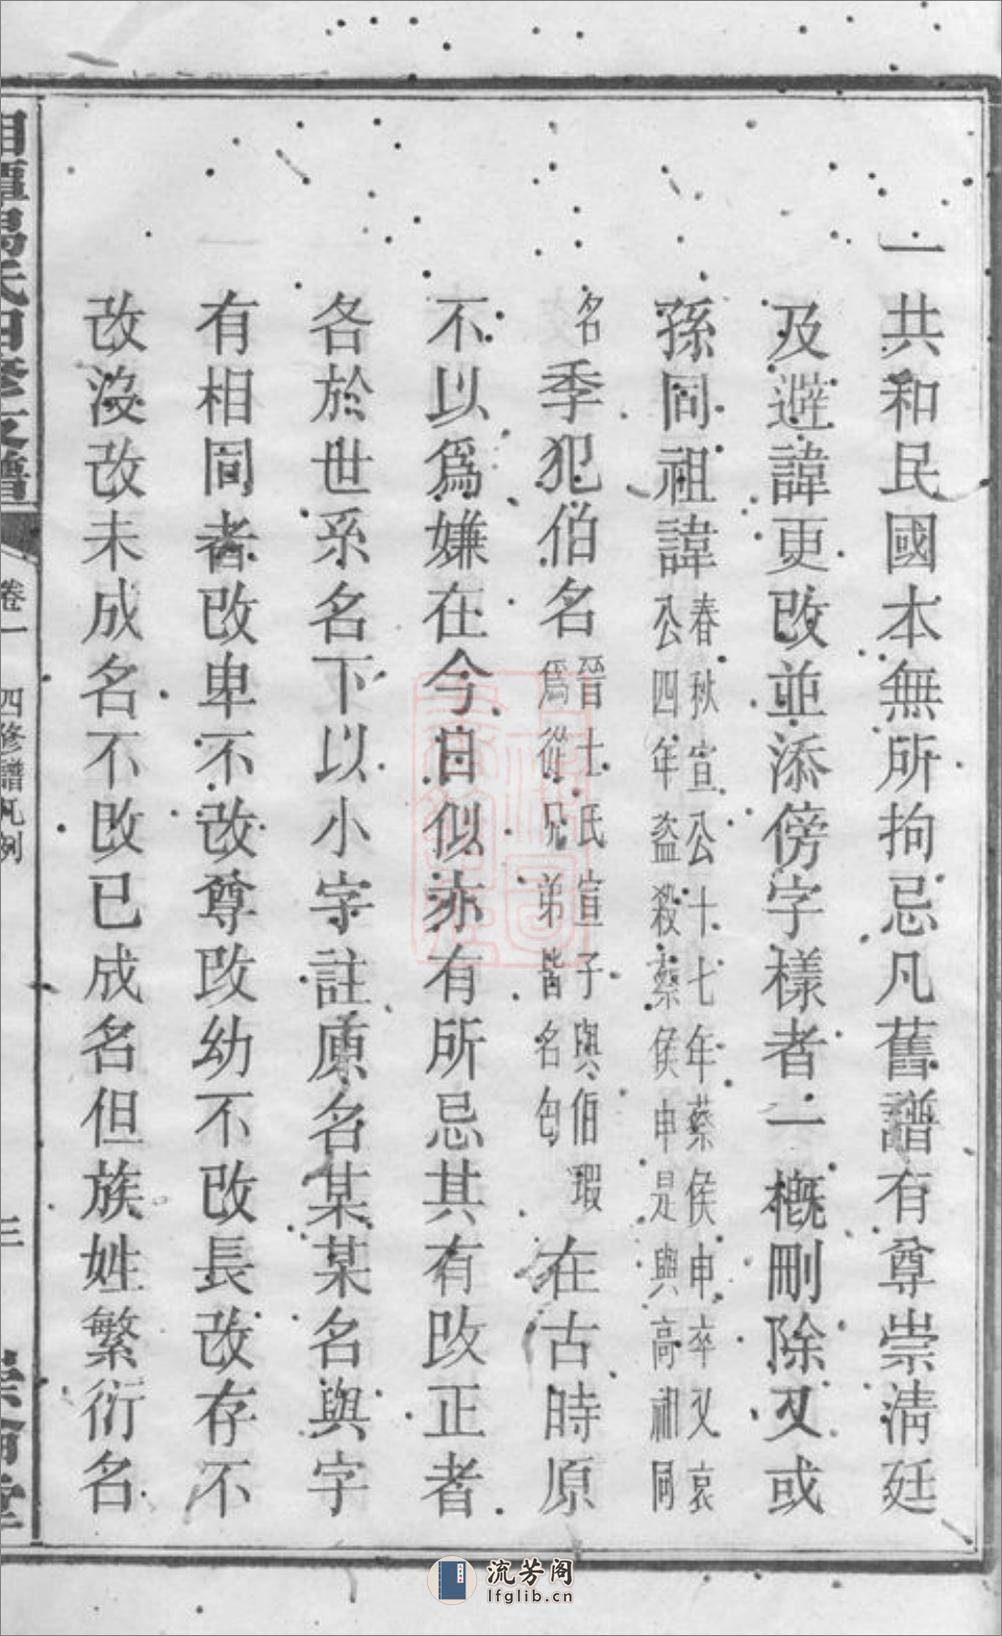 一共和民國本無所拘忌凡舊譜有尊崇清廷
及避諱更改並添傍字樣者一概刪除又或
孫同祖諱春秋宣公十七年蔡侯申卒又哀
公四年盗殺蔡侯申是與高祖同
名季犯伯名晉士氏宣子與伯瑕
爲從兄弟皆名匄在古時原
不以爲嫌在今自似亦有所忌其有改正者
各於世系名下以小字註原名某某名與字
有相同者改卑不改尊改幼不改長改存不
改沒改未成名不改已成名但族姓繁衍名
氏四修支譜
卷一
四修譜凡例
三
流芳阁
lfglib.cn